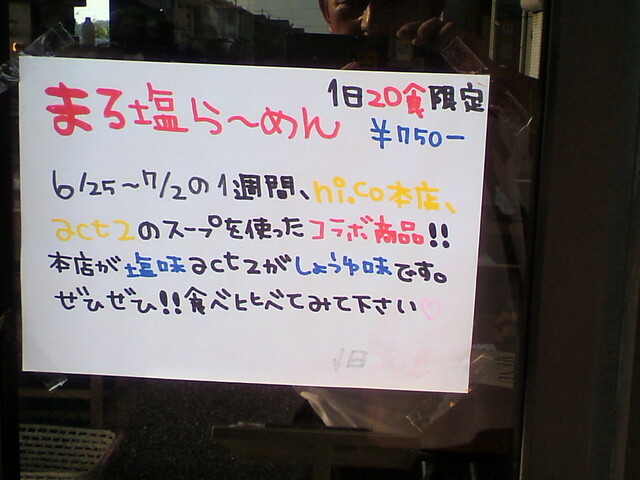 まる塩ら〜めん
1日20食限定
¥750−
6/25〜7/2の1週間、ni.co本店、
act2のスープを使ったコラボ商品!!
本店が塩味act2がしょうゆ味です。
ぜひぜひ!!食べ比べてみて下さい♡
1日